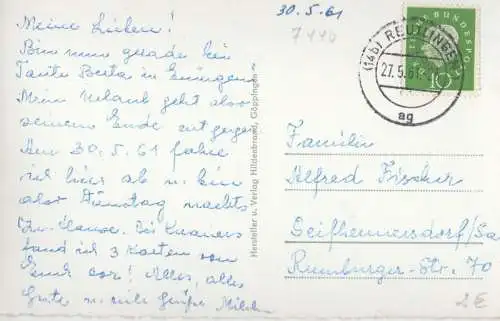 Meine Lieben!
Bin nun gerade bei
Tante Berta in Eningen.
Mein Urlaub geht also
seinem Ende entgegen
Am 30.5.61 fahre
ich hier ab u. bin
also Dienstag nachts
zu Hause. Bei
fand ich 3 Karten von
Euch vor! Alles, alles
Gute u. viele Grüße
Hersteller u. Verlag Hildenbrand, Göppingen
30.5.61
DEUTSCHE BUNDESPOST
10
(14b) REUTLINGEN
27.5.61
ag
Familie
Alfred Fischer
Seifhennersdorf/Sa
Rumburger-Str. 70
2E